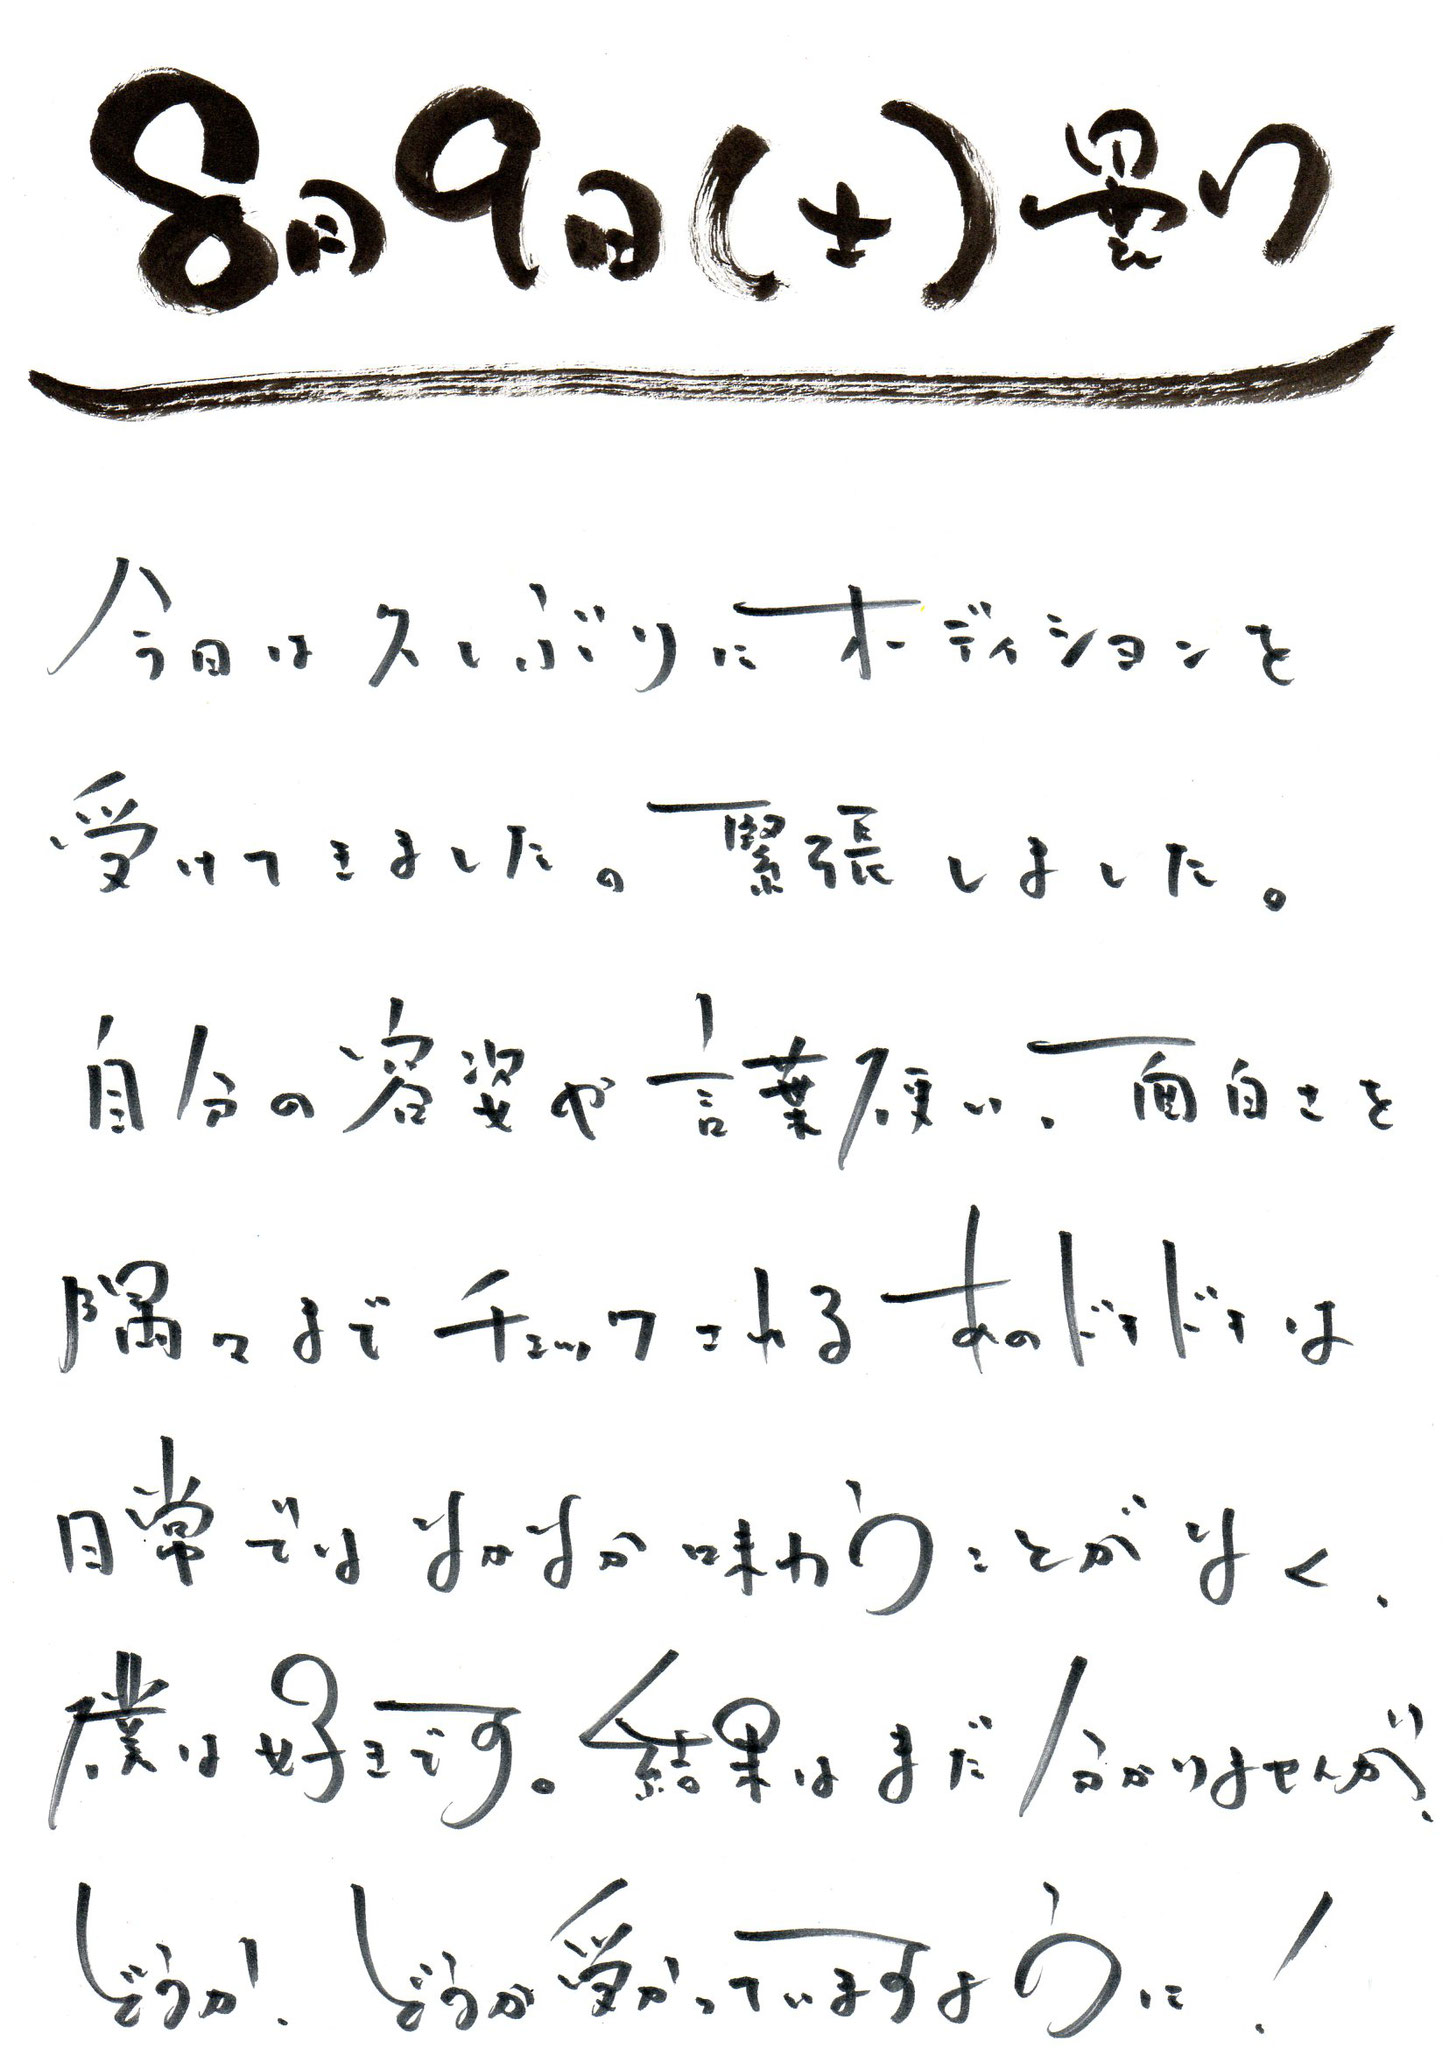 8月9日(土)曇り
今日は久しぶりにオーディションを
受けてきました。緊張しました。
自分の容姿や言葉使い、面白さを
隅々までチェックされるあのドキドキは
日常ではなかなか味わうことがなく、
僕は好きです。結果はまだ分かりませんが、
どうか、どうか受かっていますように!